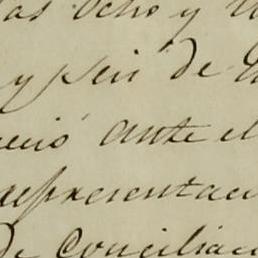 las Ocho y
y seis de
ció ante el
representac
de Conciliac